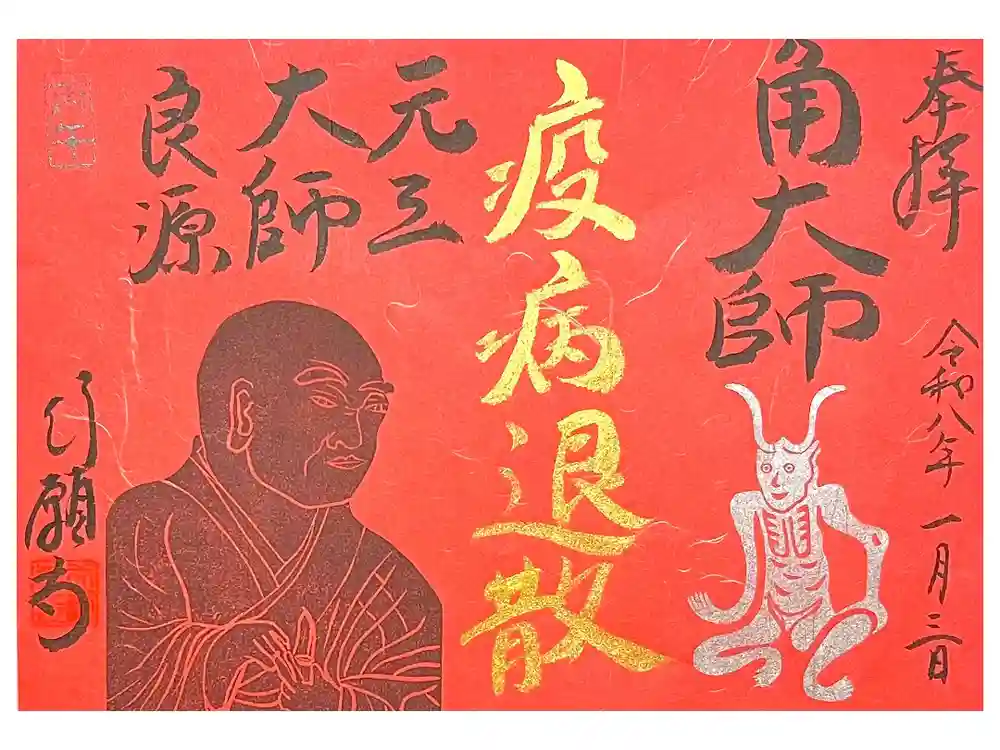 奉拝 令和八年 一月三日
角大師
疫病退散
元三
大師
良源
行願寺